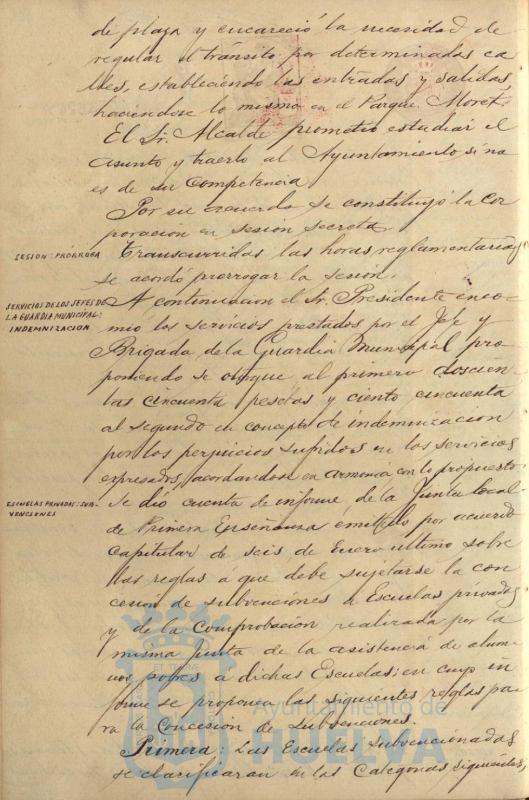 de plaza y encareció la necesidad de
regular el tránsito por determinadas ca
lles, estableciendo las entradas y salidas,
haciendose lo mismo en el Parque Moret.
El Sr. Alcalde prometio estudiar el
asunto y traerlo al Ayuntamiento si no
es de su competencia
Por su acuerdo se constituyó la Cor
poracion en sesión secreta.
SESION: PRÓRROGA
Transcurridas las horas reglamentarias
se acordó prorrogar la sesion.
SERVICIOS DE LOS JEFES DE
LA GUARDIA MUNICIPAL:
INDEMNIZACION
A continuacion el Sr. Presidente enco
mió los servicios prestados por el Jefe y
Brigada de la Guardia Municipal pro
poniendo se otorgue al primero doscien
tas cincuenta pesetas y ciento cincuenta
al segundo en concepto de indemnizacion
por los perjuicios sufridos en los servicios
expresados, acordandose en armonia con lo propuesto.
ESCUELAS PRIVADAS: SUB-
VENCIONES
Se dió cuenta de informe de la Junta local
de Primera Enseñanza emitido por acuerdo
Capitular de seis de Enero ultimo sobre
las reglas á que debe sujetarse la con
cesion de subvenciones á Escuelas privadas
y de la Comprobacion realizada por la
misma Junta de la asistencia de alum
nos pobres á dichas Escuelas; en cuyo in
forme se proponen las siguientes reglas pa
ra la Concesion de Subvenciones.
Primera: Las Escuelas subvencionadas
se clasificaran en las Categorias siguientes,
Ayuntamiento de
HUELVA